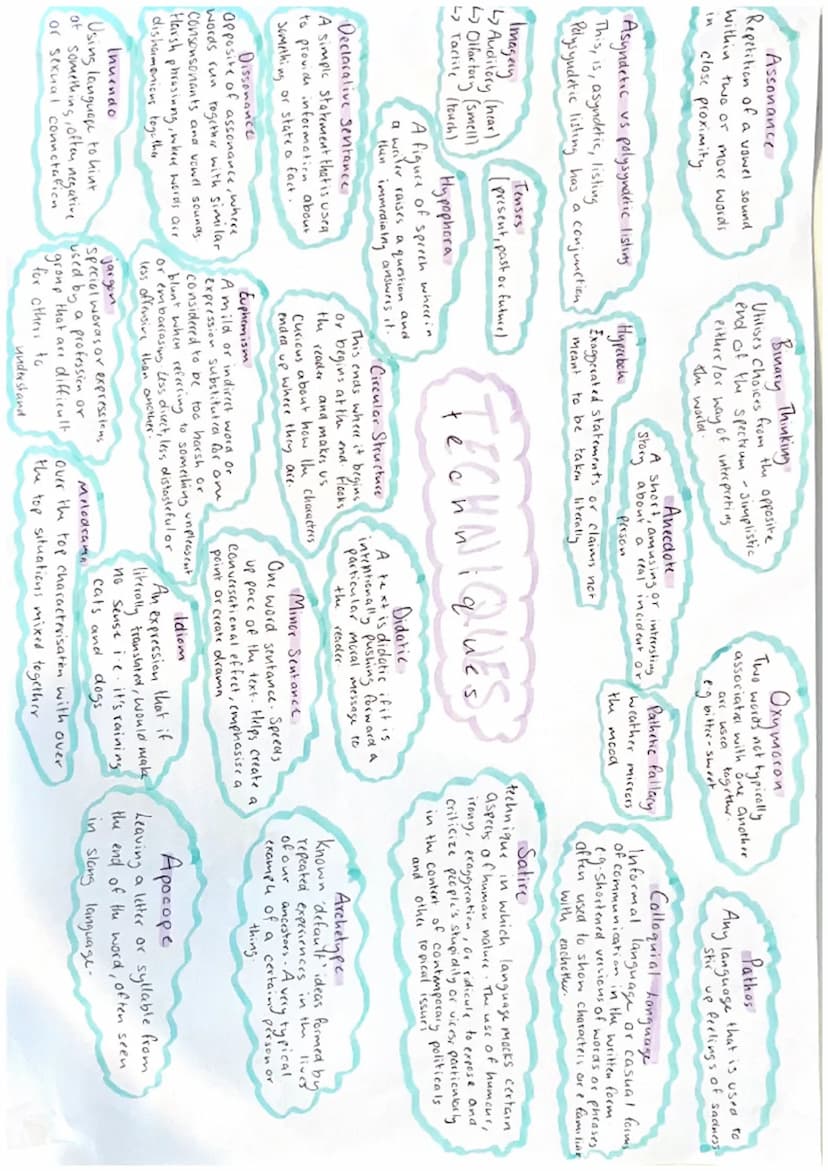 Assonance
Repetition of a vowel sound
within two or more words
in close proximity
Binary Thinking
Utilises choices from the opposite
end of the spectrum - simplistic
either/or way of interpreting
the world.
Oxymoron
Two words not typically
associated with one another
are used together.
eg bitter-sweet
Pathos
Any language that is used to
stir up feelings of sadness
Asyndetic vs polysyndetic listing
This, is, asyndetic, listing
Polysyndetic listing has a conjunction
Hyperbole
Exaggerated statements or claims not
meant to be taken literally
Anecdote
A short, amusing or interesting
story about a real incident or
person
Pathetic fallacy
weather mirrors
the mood
Colloquial Language
Informal language or casual forms
of communication in the written form
e.g. shortened versions of words or phrases
often used to show characters are familiar
with eachother.
Imagery
↳ Auditory (hear)
↳ Olfactory (smell)
↳ Tactile (touch)
Tenses
(present, past or future)
Hypophora
A figure of speech wherein
a writer raises a question and
then immediatley answers it.
TECHNIQUES
techniques
Satire
technique in which language mocks certain
aspects of human nature. The use of humour,
irony, exaggeration, or ridicule to expose and
criticize people's stupidity or vices, particularly
in the context of contemporary politicals
and other topical issues
Declarative sentance
A simple statement that is used
to provide information about
something or state a fact.
Circular Structure
This ends where it begins
or begins at the end. Hooks
the reader and makes us
curious about how the characters
ended up where they are.
Didatic
A text is didatic if it is
intentionally pushing forward a
particular moral message to
the reader
Dissonance
Opposite of assonance, where
words run together with similar
consensonants and vowel sounds.
Harsh phrasing, where words are
disharmonious together
Euphemism
A mild or indirect word or
expression substituted for one
considered to be too harsh or
blunt when referring to something unpleasent
or embarrasing. Less direct, less distasteful or
less offensive than another.
Minor Sentance
One word sentance. Speeds
up pace of the text. Helps create a
conversational effect, emphasise a
point or create drama
Archetype
Known 'default' ideas formed by
repeated experiences in the lives
of our ancestors. A very typical
example of a certain person or
thing
Inuendo
Using language to hint
at something, often negative
or sexual connotation
jargon
special words or expressions
used by a profession or
group that are difficult
for others to
understand
Idiom
An expression that if
literally translated, would make
no sense i.e. it's raining
cats and dogs
Mlodrama
Over the top characterisation with over
the top situations mixed together
Apocope
Leaving a letter or syllable from
the end of the word, often seen
in slang language.